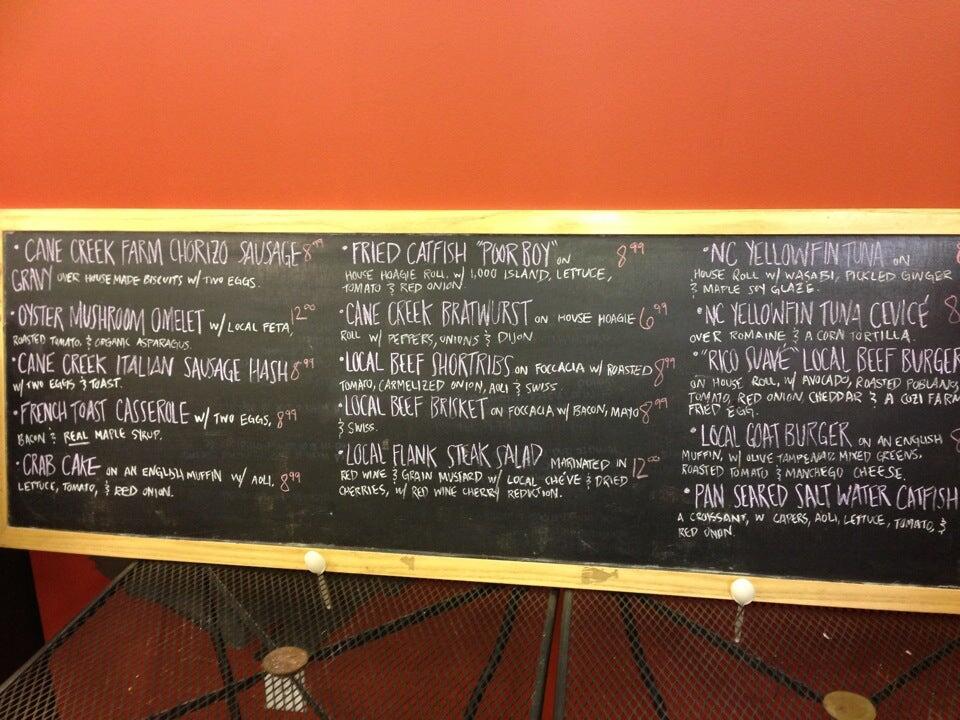 • CANE CREEK FARM CHORIZO SAUSAGE 8⁹⁹
GRAVY OVER HOUSE MADE BISCUITS W/ TWO EGGS.
• OYSTER MUSHROOM OMELET W/ LOCAL FETA, 12⁰⁰
ROASTED TOMATO, & ORGANIC ASPARAGUS.
• CANE CREEK ITALIAN SAUSAGE HASH 8⁹⁹
W/ TWO EGGS & TOAST.
• FRENCH TOAST CASSEROLE W/ TWO EGGS, 8⁹⁹
BACON & REAL MAPLE SYRUP.
• CRAB CAKE ON AN ENGLISH MUFFIN W/ AOLI, 8⁹⁹
LETTUCE, TOMATO, & RED ONION.
• FRIED CATFISH "POOR BOY" ON 8⁹⁹
HOUSE HOAGIE ROLL, W/ 1,000 ISLAND, LETTUCE,
TOMATO & RED ONION.
• CANE CREEK BRATWURST ON HOUSE HOAGIE 6⁹⁹
ROLL W/ PEPPERS, ONIONS & DIJON
• LOCAL BEEF SHORTRIBS ON FOCCACIA W/ ROASTED 8⁹⁹
TOMATO, CARMELIZED ONION, AOLI & SWISS.
• LOCAL BEEF BRICKET ON FOCCACIA W/ BACON, MAYO 8⁹⁹
& SWISS.
• LOCAL FLANK STEAK SALAD MARINATED IN 12⁰⁰
RED WINE & GRAIN MUSTARD W/ LOCAL CHEVE & DRIED
CHERRIES, W/ RED WINE CHERRY REDUCTION.
• NC YELLOWFIN TUNA ON 8
HOUSE ROLL W/ WASABI, PICKLED GINGER
& MAPLE SOY GLAZE.
• NC YELLOWFIN TUNA CEVICÉ 8
OVER ROMAINE & A CORN TORTILLA.
• "RICO SUAVÉ" LOCAL BEEF BURGER
ON HOUSE ROLL, W/ AVOCADO, ROASTED POBLANO,
TOMATO, RED ONION, CHEDDAR & A COZI FARM
FRIED EGG.
• LOCAL GOAT BURGER ON AN ENGLISH
MUFFIN, W/ OLIVE TAMPENAD, MIXED GREENS,
ROASTED TOMATO & MANCHEGO CHEESE.
• PAN SEARED SALT WATER CATFISH
A CROISSANT, W/ CAPERS, AOLI, LETTUCE, TOMATO, &
RED ONION.